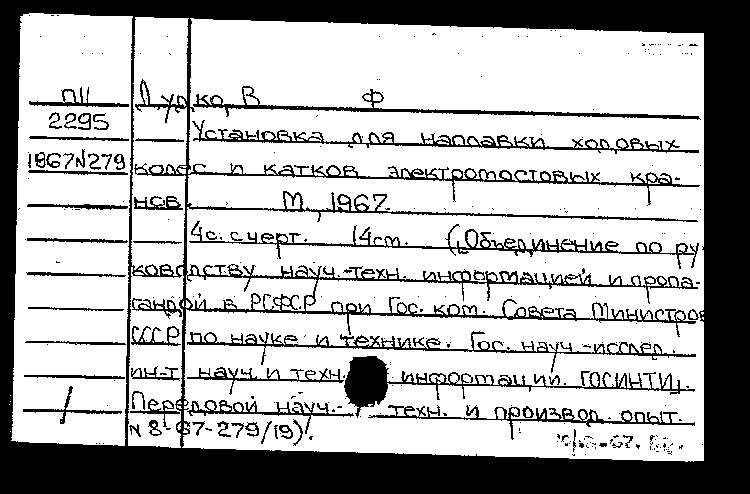 П11 Дудко, В Ф
2295 Установка для наплавки ходовых
1967N279 колес и катков электромостовых кра-
нов. М., 1967.
4с. с черт. 14cm. (Объединение по ру-
ководству науч.-техн. информацией и пропа-
гандой в РСФСР при Гос. ком. Совета Министров
СССР по науке и технике. Гос. науч.-исслед.
ин-т науч. и техн. информации. ГОСИНТИ).
Передовой науч.- техн. и производ. опыт.
N 8-67-279/19).